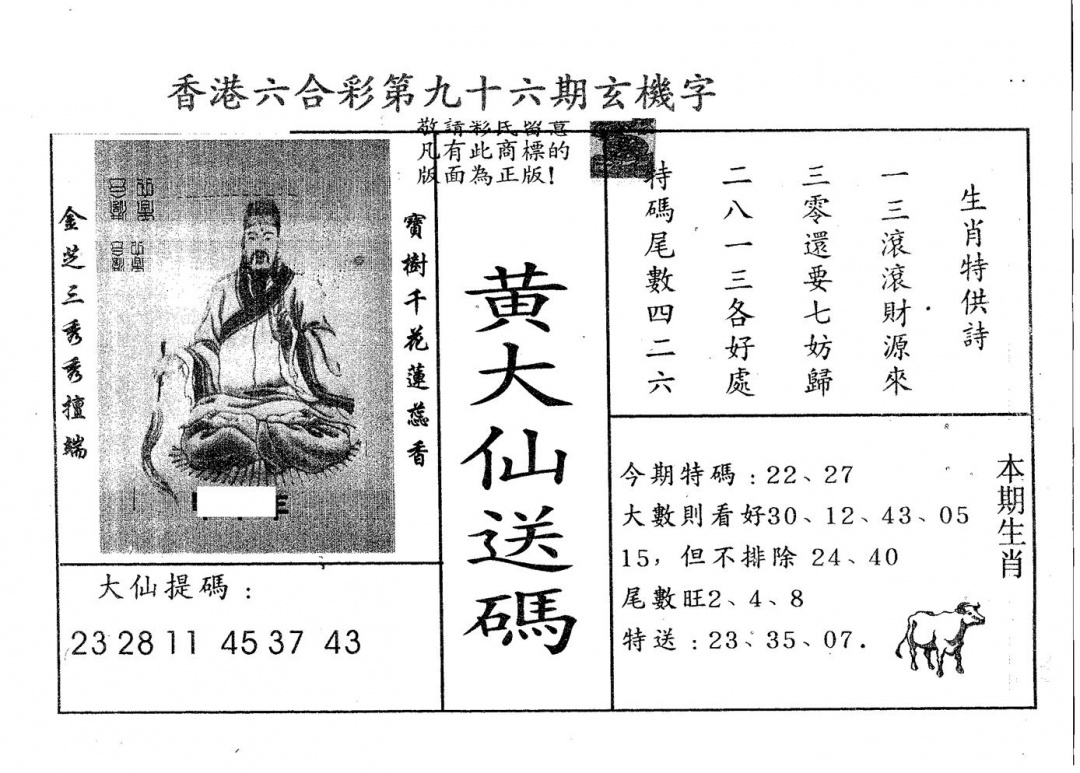 香港六合彩第九十六期玄機字
敬請彩民留意
凡有此商標的
版面為正版!
生肖特供詩
一三滾滾財源來
三零還要七妨歸
二八一三各好處
特碼尾數四二六
寶樹千花蓮蕊香
金芝三秀秀擅端
黃大仙送碼
大仙提碼:
23 28 11 45 37 43
本期生肖
今期特碼:22、27
大數則看好30、12、43、05
15,但不排除 24、40
尾數旺2、4、8
特送:23、35、07.